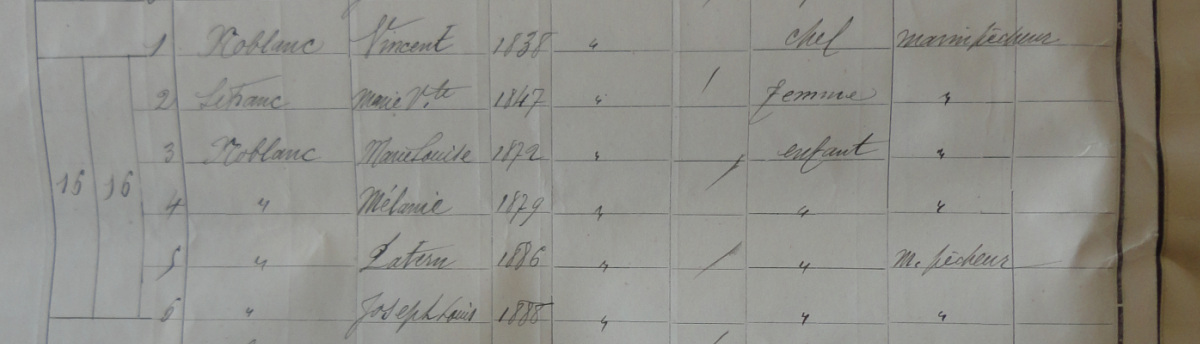 1 Noblanc Vincent 1838 " chef marin pêcheur
2 Lefranc Marie Vte 1847 " femme "
3 Noblanc Marie Louise 1872 " enfant "
16 16 4 " Mélanie 1879 " " "
5 " Patern 1886 " " m. pêcheur
6 " Joseph Louis 1888 " " "